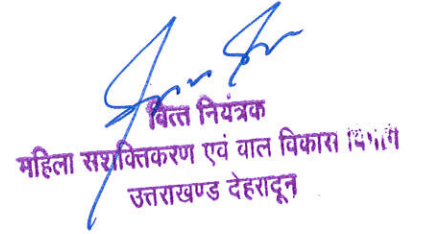 वित्त नियंत्रक
महिला सशक्तिकरण एवं वाल विकास विभाग
उत्तराखण्ड देहरादून